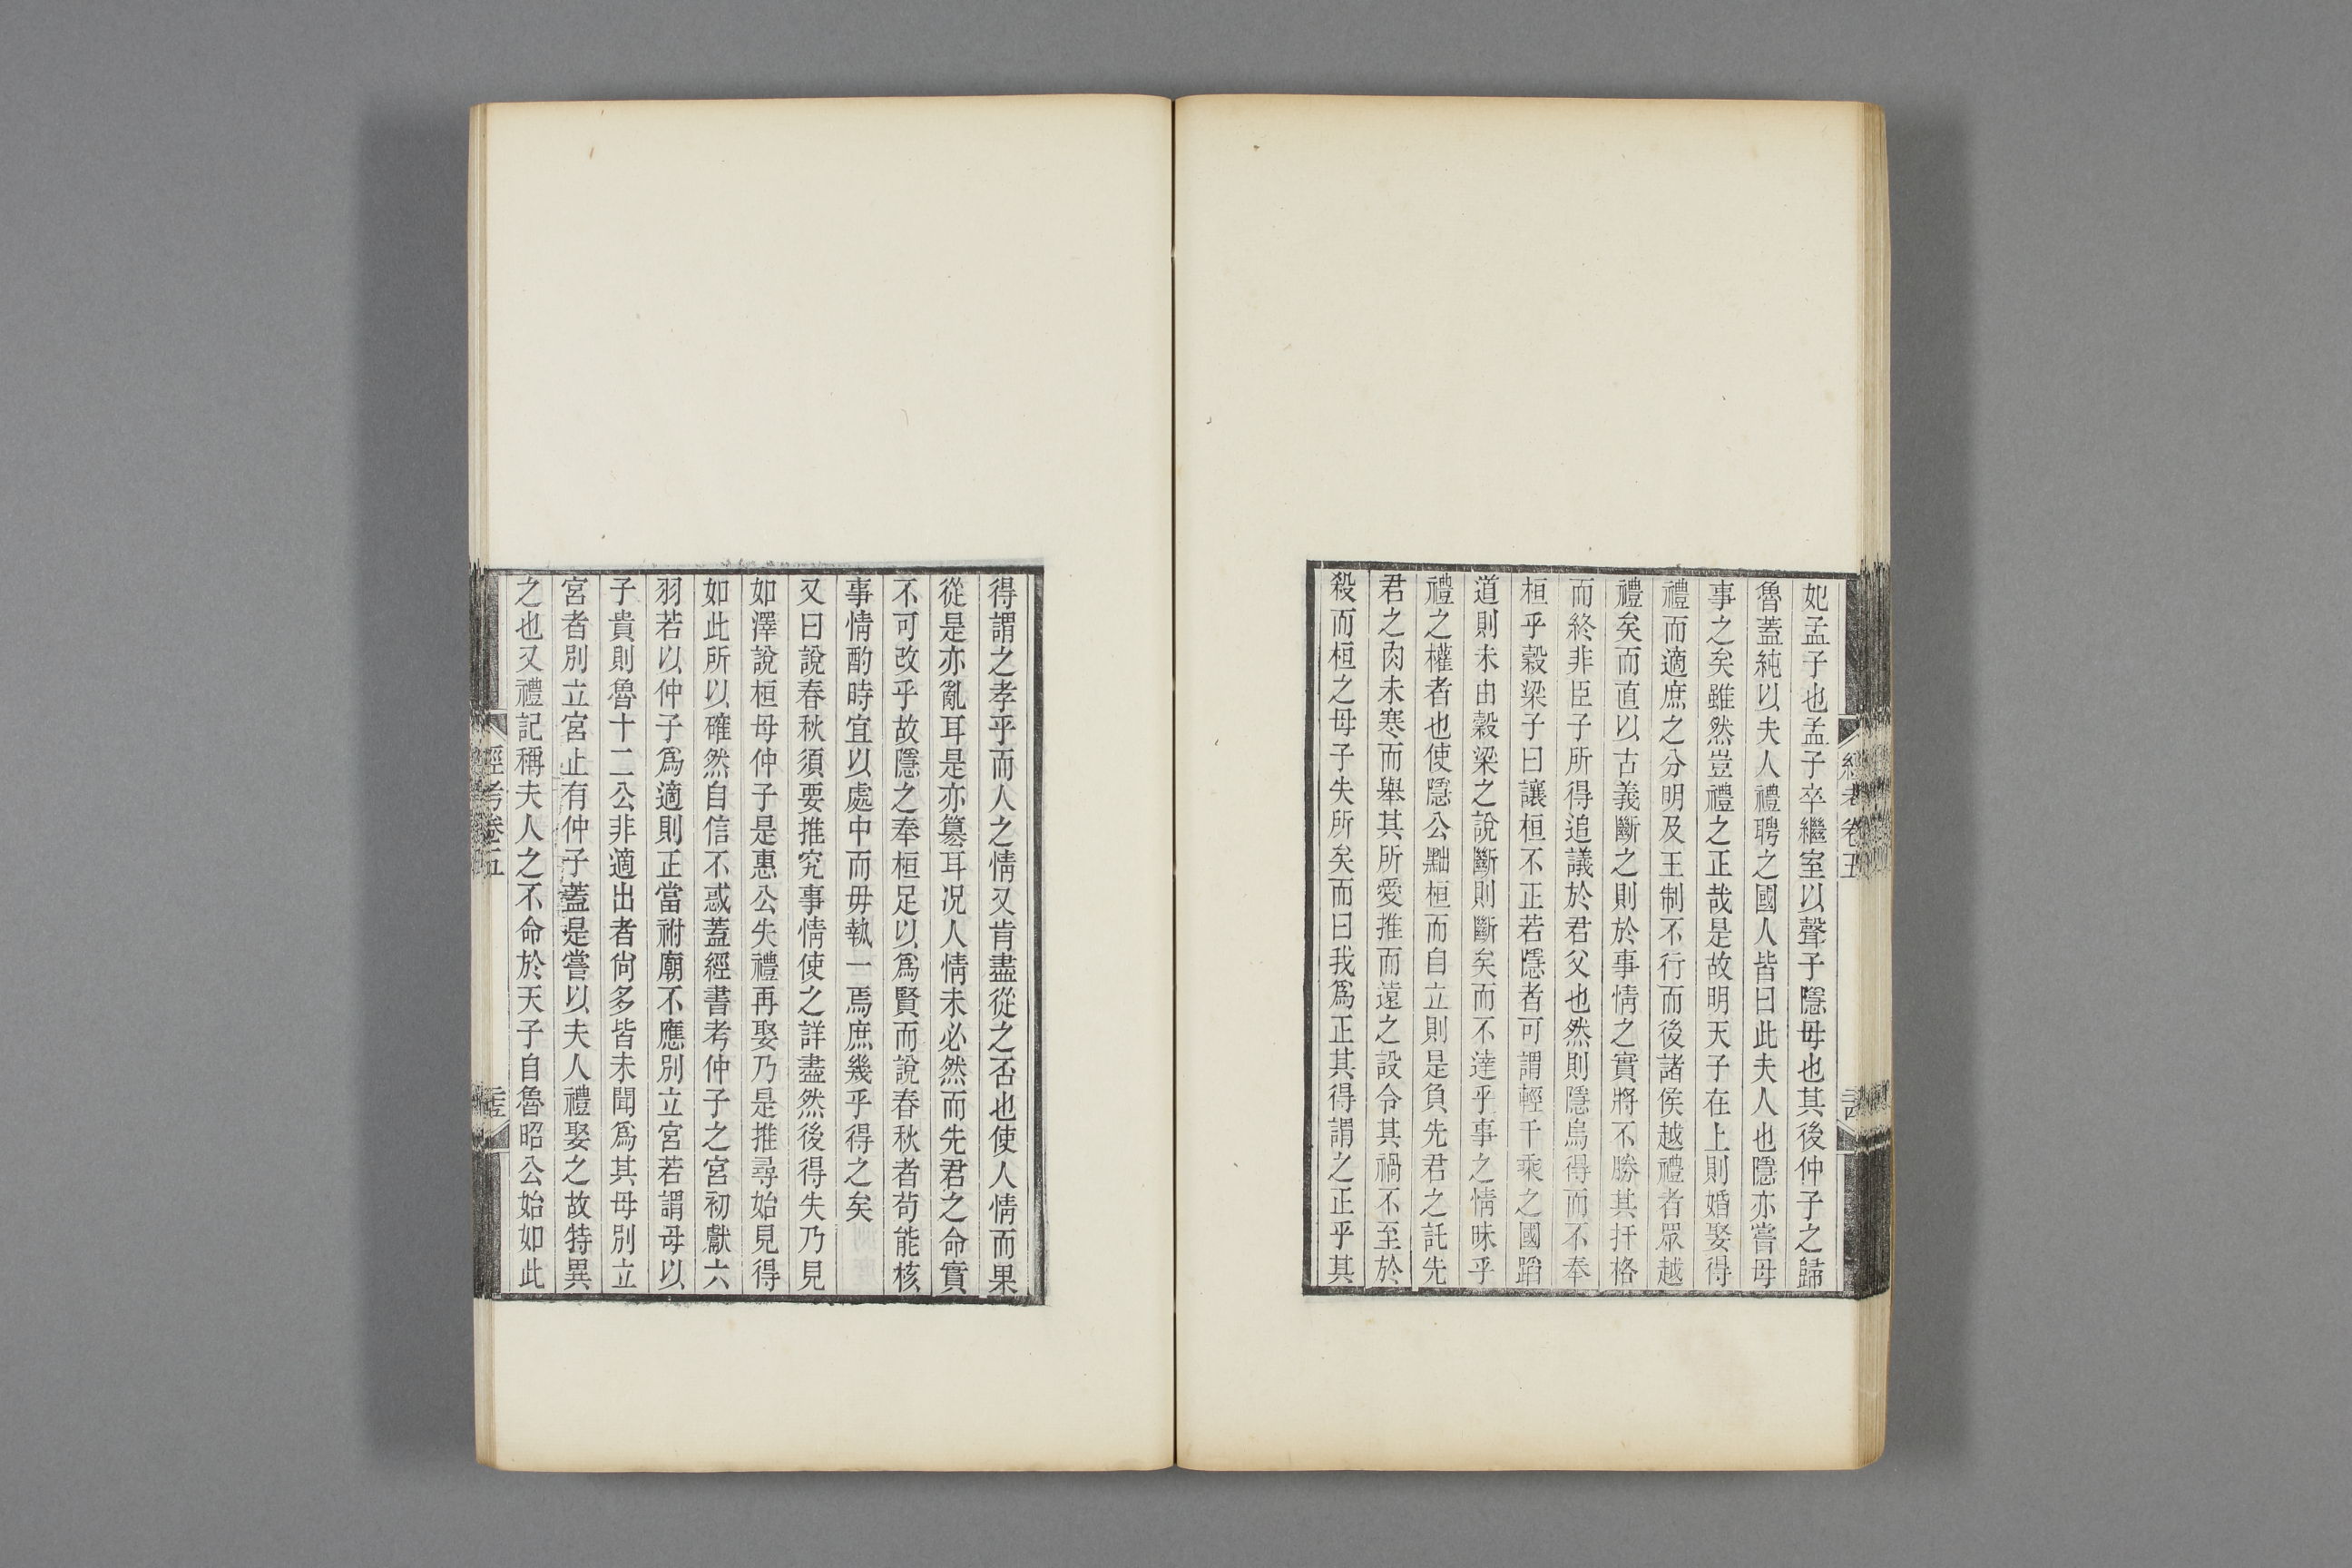 妃孟子也孟子卒繼室以聲子隱毋也其後仲子之歸
魯蓋純以夫人禮聘之國人皆曰此夫人也隱亦嘗母
事之矣雖然豈禮之正哉是故明天子在上則婚娶得
禮而適庶之分明及王制不行而後諸侯越禮者眾越
禮矣而直以古義斷之則於事情之實將不勝其扞格
而終非臣子所得追議於君父也然則隱烏得而不奉
桓乎穀梁子曰讓桓不正若隱者可謂輕千乘之國蹈
道則未由穀梁之說斷則斷矣而不達乎事之情昧乎
禮之權者也使隱公黜桓而自立則是負先君之託先
君之肉未寒而舉其所愛推而遠之設令其禍不至於
殺而桓之母子失所矣而曰我爲正其得謂之正乎其
經考卷五
得謂之孝乎而人之情又肯盡從之否也使人情而果
從是亦亂耳是亦篡耳况人情未必然而先君之命實
不可改乎故隱之奉桓足以爲賢而說春秋者苟能核
事情酌時宜以處中而毋執一焉庶幾乎得之矣
又曰說春秋須要推究事情使之詳盡然後得失乃見
如澤說桓母仲子是惠公失禮再娶乃是推尋始見得
如此所以確然自信不惑蓋經書考仲子之宮初獻六
羽若以仲子爲適則正當祔廟不應別立宮若謂母以
子貴則魯十二公非適出者尙多皆未聞爲其母別立
宮者別立宮止有仲子蓋是嘗以夫人禮娶之故特異
之也又禮記稱夫人之不命於天子自魯昭公始如此
經考卷五